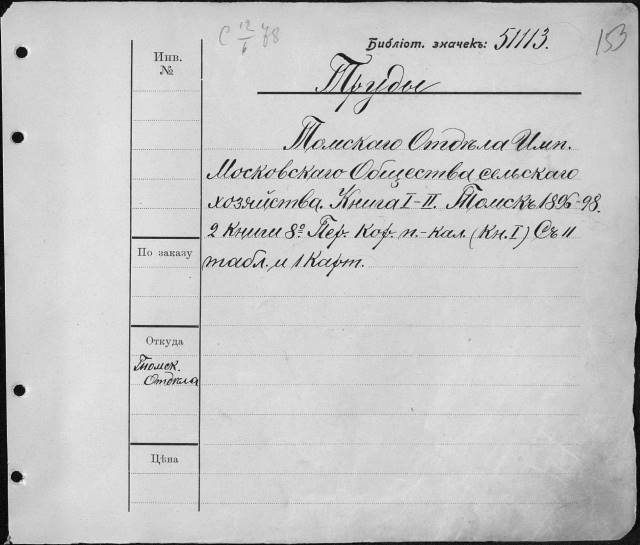 С 12/6 78
Библіот. значекъ: 51113.
153
Инв.
№
Труды
Томскаго Отдѣла Имп.
Московскаго Общества сельскаго
хозяйства. Книга I-II. Томскъ 1896-98.
2 книги 8º Пер. Кор. п.-кал. (Кн. I) Съ 11
табл. и 1 карт.
По заказу
Откуда
Томск.
Отдѣла
Цѣна